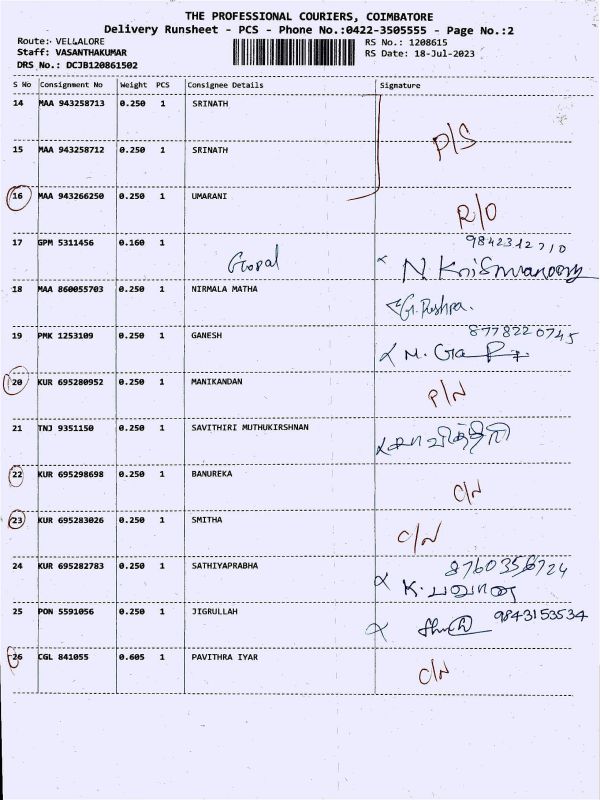 THE PROFESSIONAL COURIERS, COIMBATORE
Delivery Runsheet - PCS - Phone No.:0422-3505555 - Page No.:2
Route: VELLALORE RS No.: 1208615
Staff: VASANTHAKUMAR RS Date: 18-Jul-2023
DRS No.: DCJB120861502
S No Consignment No Weight PCS Consignee Details Signature
14 MAA 943258713 0.250 1 SRINATH
P/S
15 MAA 943258712 0.250 1 SRINATH
16 MAA 943266250 0.250 1 UMARANI
R/O
17 GPM 5311456 0.160 1 9842312710
Gopal N
18 MAA 860055703 0.250 1 NIRMALA MATHA
G. Pushpa.
19 PMK 1253109 0.250 1 GANESH 8778220745
20 KUR 695280952 0.250 1 MANIKANDAN P/N
21 TNJ 9351150 0.250 1 SAVITHIRI MUTHUKIRSHNAN
சாவித்திரி
22 KUR 695298698 0.250 1 BANUREKA
C/N
23 KUR 695283026 0.250 1 SMITHA
C/N
24 KUR 695282783 0.250 1 SATHIYAPRABHA 8760356724
K.
25 PON 5591056 0.250 1 JIGRULLAH 9843153534
26 CGL 841055 0.605 1 PAVITHRA IYAR
C/N